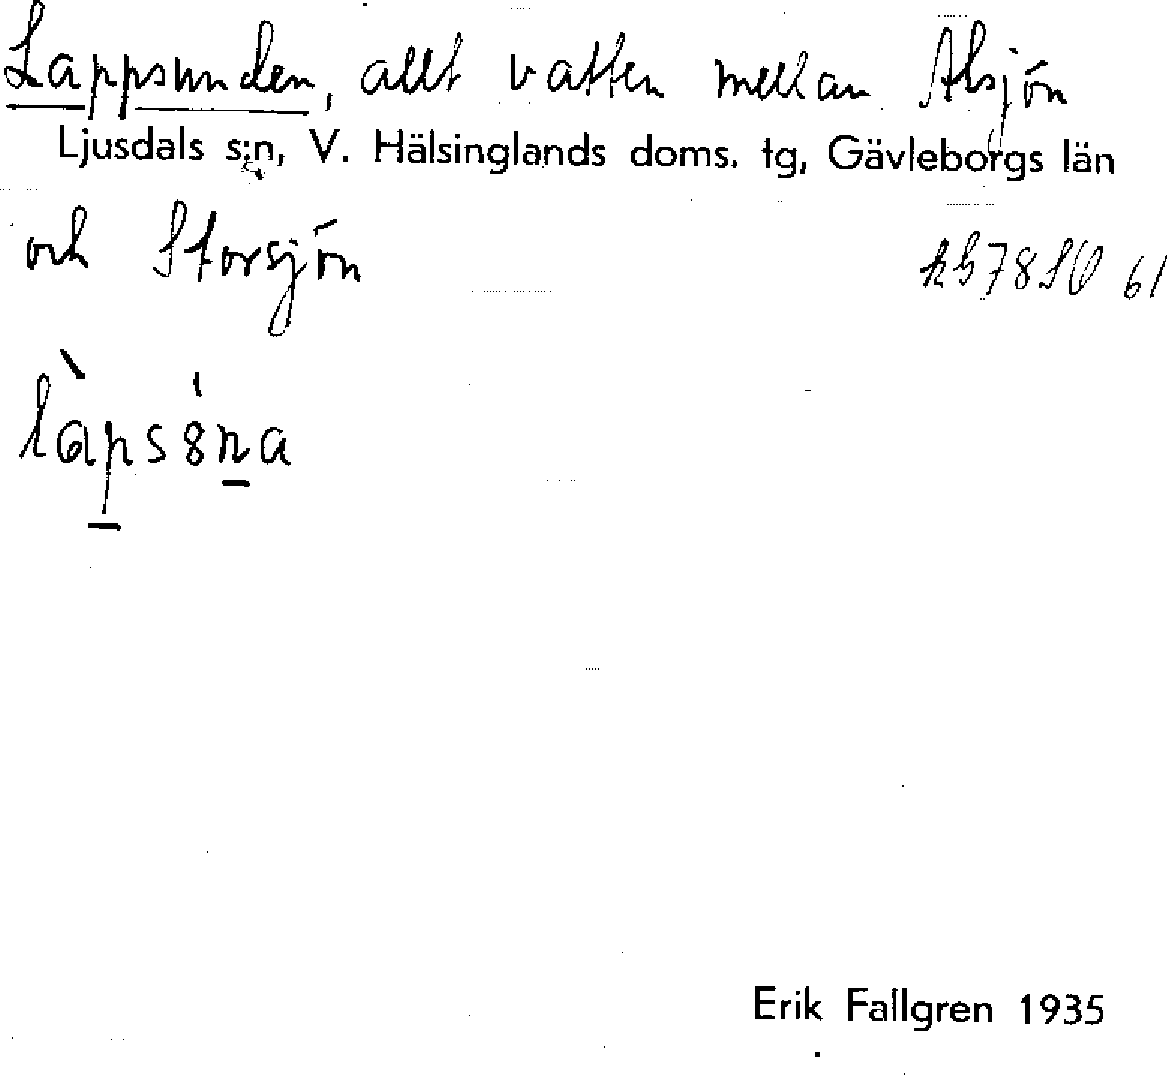 Lappsunden, allt vatten mellan Alsjön
Ljusdals s:n, V. Hälsinglands doms. tg, Gävleborgs län
och Storsjön
61
Erik Fallgren 1935